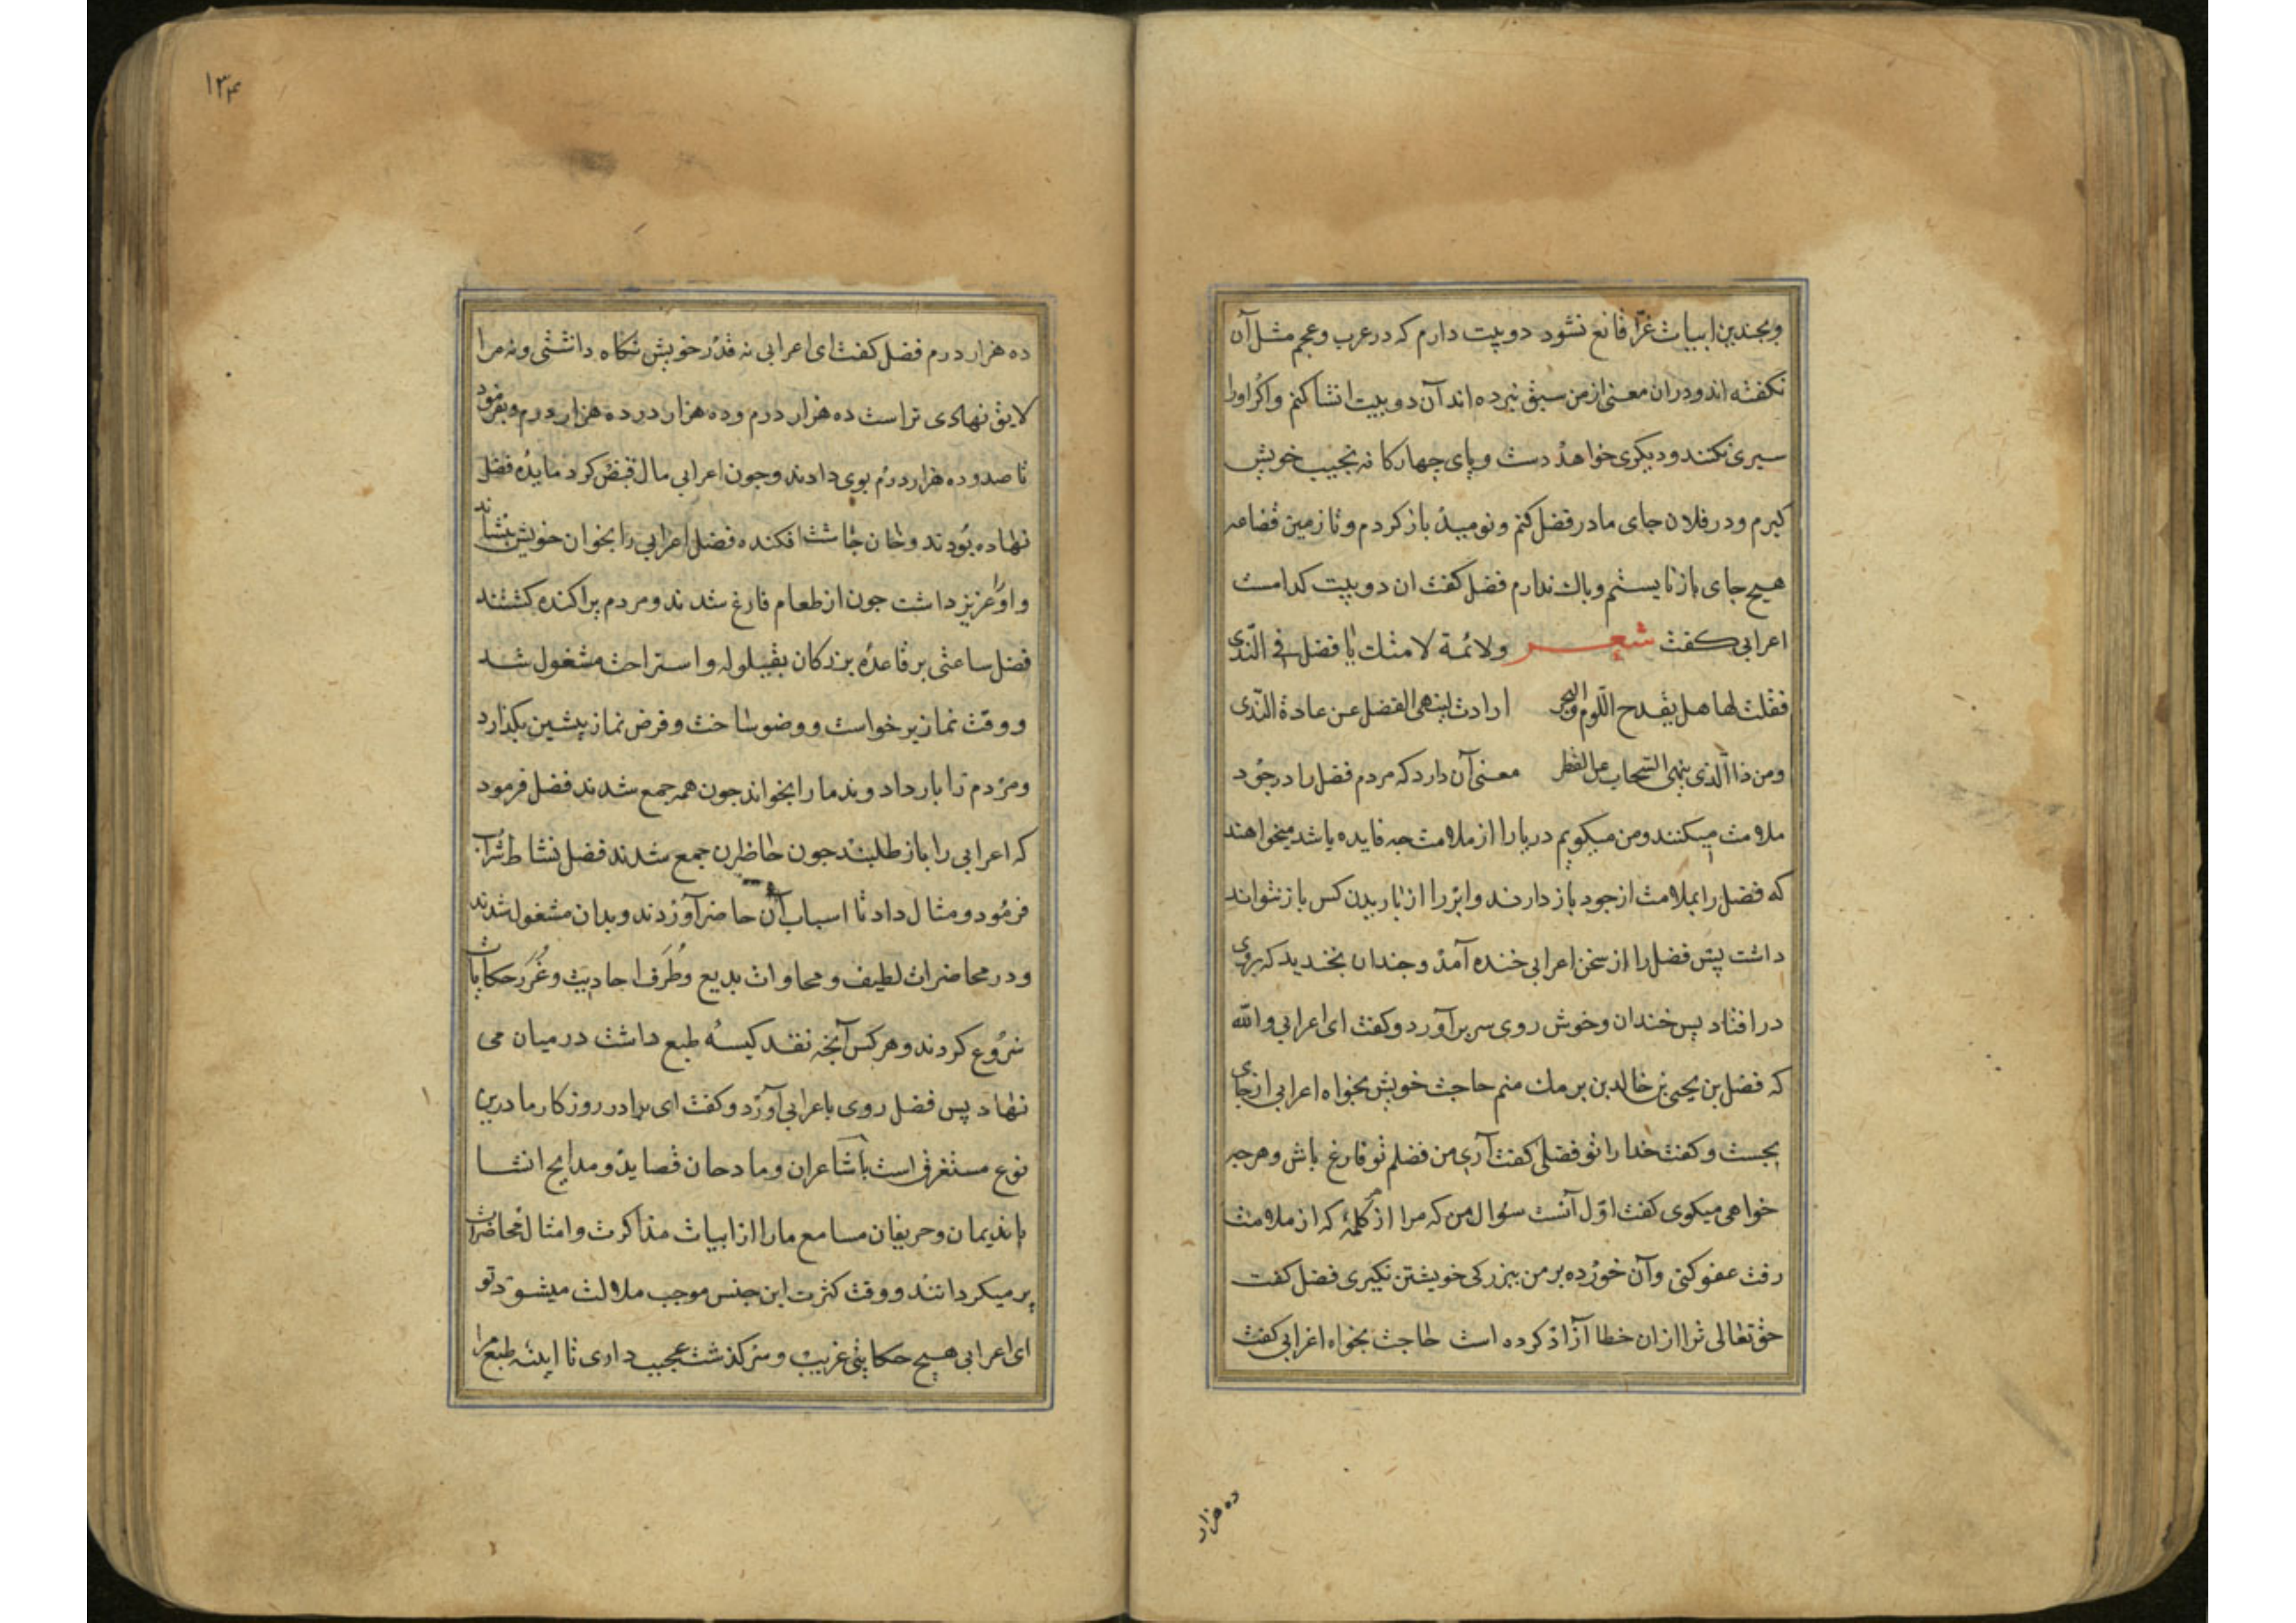 وبچندین ابیات غرّا قانع نشود دو بیت دارم که در عرب وعجم مثل آن
نکفته اند ودران معنی از من سبق نبرده اند آن دو بیت انشا کنم واکر اورا
سیری نکند ودیکری خواهد دست وپای چهارکانه نجیب خویش
کیرم ودر فلان جای مادر فضل کنم ونومید بازکردم وتا زمین قضاعه
هیچ جای باز نایستم وباک ندارم فضل کفت ان دو بیت کدامست
اعرابی کفت شعر ولائمة لامتك یا فضل فی الندی
فقلت لها هل یقدح اللوم فی البحر ارادت لینهی الفضل عن عادة الندی
ومن ذا الّذی ینهی السّحاب عن القطر معنی آن دارد که مردم فضل را در جود
ملامت میکنند ومن میکویم دریا را از ملامت چه فایده باشد میخواهند
که فضل را بملامت از جود باز دارند وابر را از باریدن کس باز نتواند
داشت پس فضل را از سخن اعرابی خنده آمد وچندان بخندید که بروی
در افتاد پس خندان وخوش روی سر برآورد وکفت ای اعرابی والله
که فضل بن یحیی بن خالد بن برمک منم حاجت خویش بخواه اعرابی از جای
بجست وکفت خدا را تو فضلی کفت آری من فضلم تو فارغ باش وهر چه
خواهی میکوی کفت اوّل آنست سؤال من که مرا از کلمهٔ که از ملامت
رفت عفو کنی وآن خورده بر من ببزرکی خویشتن نکیری فضل کفت
حق تعالی ترا ازان خطا آزاد کرده است حاجت بخواه اعرابی کفت
ده هزار
١٣٤
ده هزار درم فضل کفت ای اعرابی نه قدر خویش نکاه داشتی ونه مرا
لایق نهادی تراست ده هزار درم وده هزار در ده هزار درم وبفرمود
تا صد وده هزار درم بوی دادند وچون اعرابی مال قبض کرد مایدهٔ فضل
نهاده بودند وخان چاشت افکنده فضل اعرابی را بخوان خویش بنشاند
واو عزیز داشت چون از طعام فارغ شدند ومردم پراکنده کشتند
فضل ساعتی بر قاعدهٔ بزرکان بقیلوله واستراحت مشغول شد
ووقت نماز برخواست ووضو ساخت وفرض نماز پیشین بکذارد
ومردم را بار داد وندما را بخواند چون همه جمع شدند فضل فرمود
که اعرابی را باز طلبند چون حاظران جمع شدند فضل نشاط شراب
فرمود ومثال داد تا اسباب آن حاضر آوردند وبدان مشغول شدند
ودر محاضرات لطیف ومحاورات بدیع وطُرَف احادیث وغُرَر حکایات
شروع کردند وهر کس آنچه نقد کیسهٔ طبع داشت در میان می
نهاد پس فضل روی باعرابی آورد وکفت ای برادر روزکار ما درین
نوع مستغرق است با شاعران ومادحان قصاید ومدایح انشا
با ندیمان وحریفان مسامع مارا از ابیات مذاکرت وامثال محاضرات
پر میکردانند ووقت کثرت این جنس موجب ملالت میشود تو
ای اعرابی هیچ حکایتی غریب وسرکذشت عجیب داری تا اینه طبع مرا